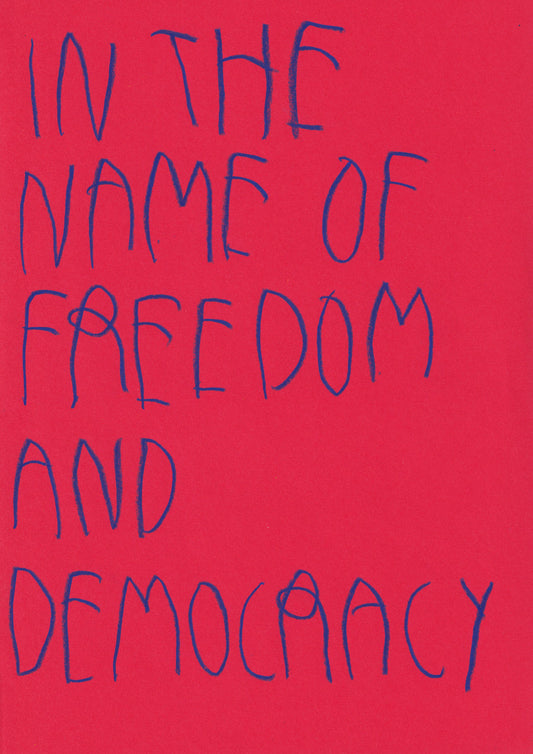 IN THE
NAME OF
FREEDOM
AND
DEMOCRACY